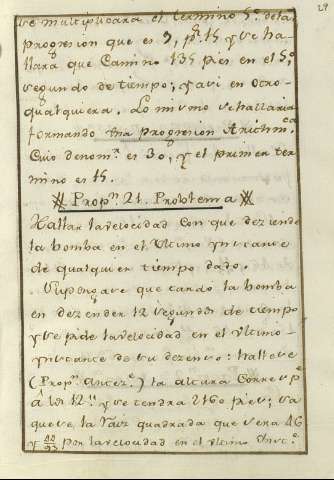 29
se multiplicara el termino 5.º de la
progresion que es 9, pr. 15 y se ha-
llara que Camino 135 pies en el 5.º
segundo de tiempo; y asi en otro-
qualquiera. Lo mismo se hallaria
formando una progresion Arithm.ca
Cuio denomr. es 30, y el primer ter-
mino es 15.
Propn. 21. Problema
Hallar la velocidad con que deziende
la bomba en el Ultimo ynstante
de qualquier tiempo dado.
Supongase que tardo la bomba
en dezender 12 segundos de tiempo
y se pide la velocidad en el Ultimo-
ynstante de su dezenso: hallese
(Propn. antezte.) la altura Correspte.
á los 12." y se tendra 2160 pies; sa
quese la raiz quadrada que sera 46
y 44/93 por la velocidad en el ultimo Inste.